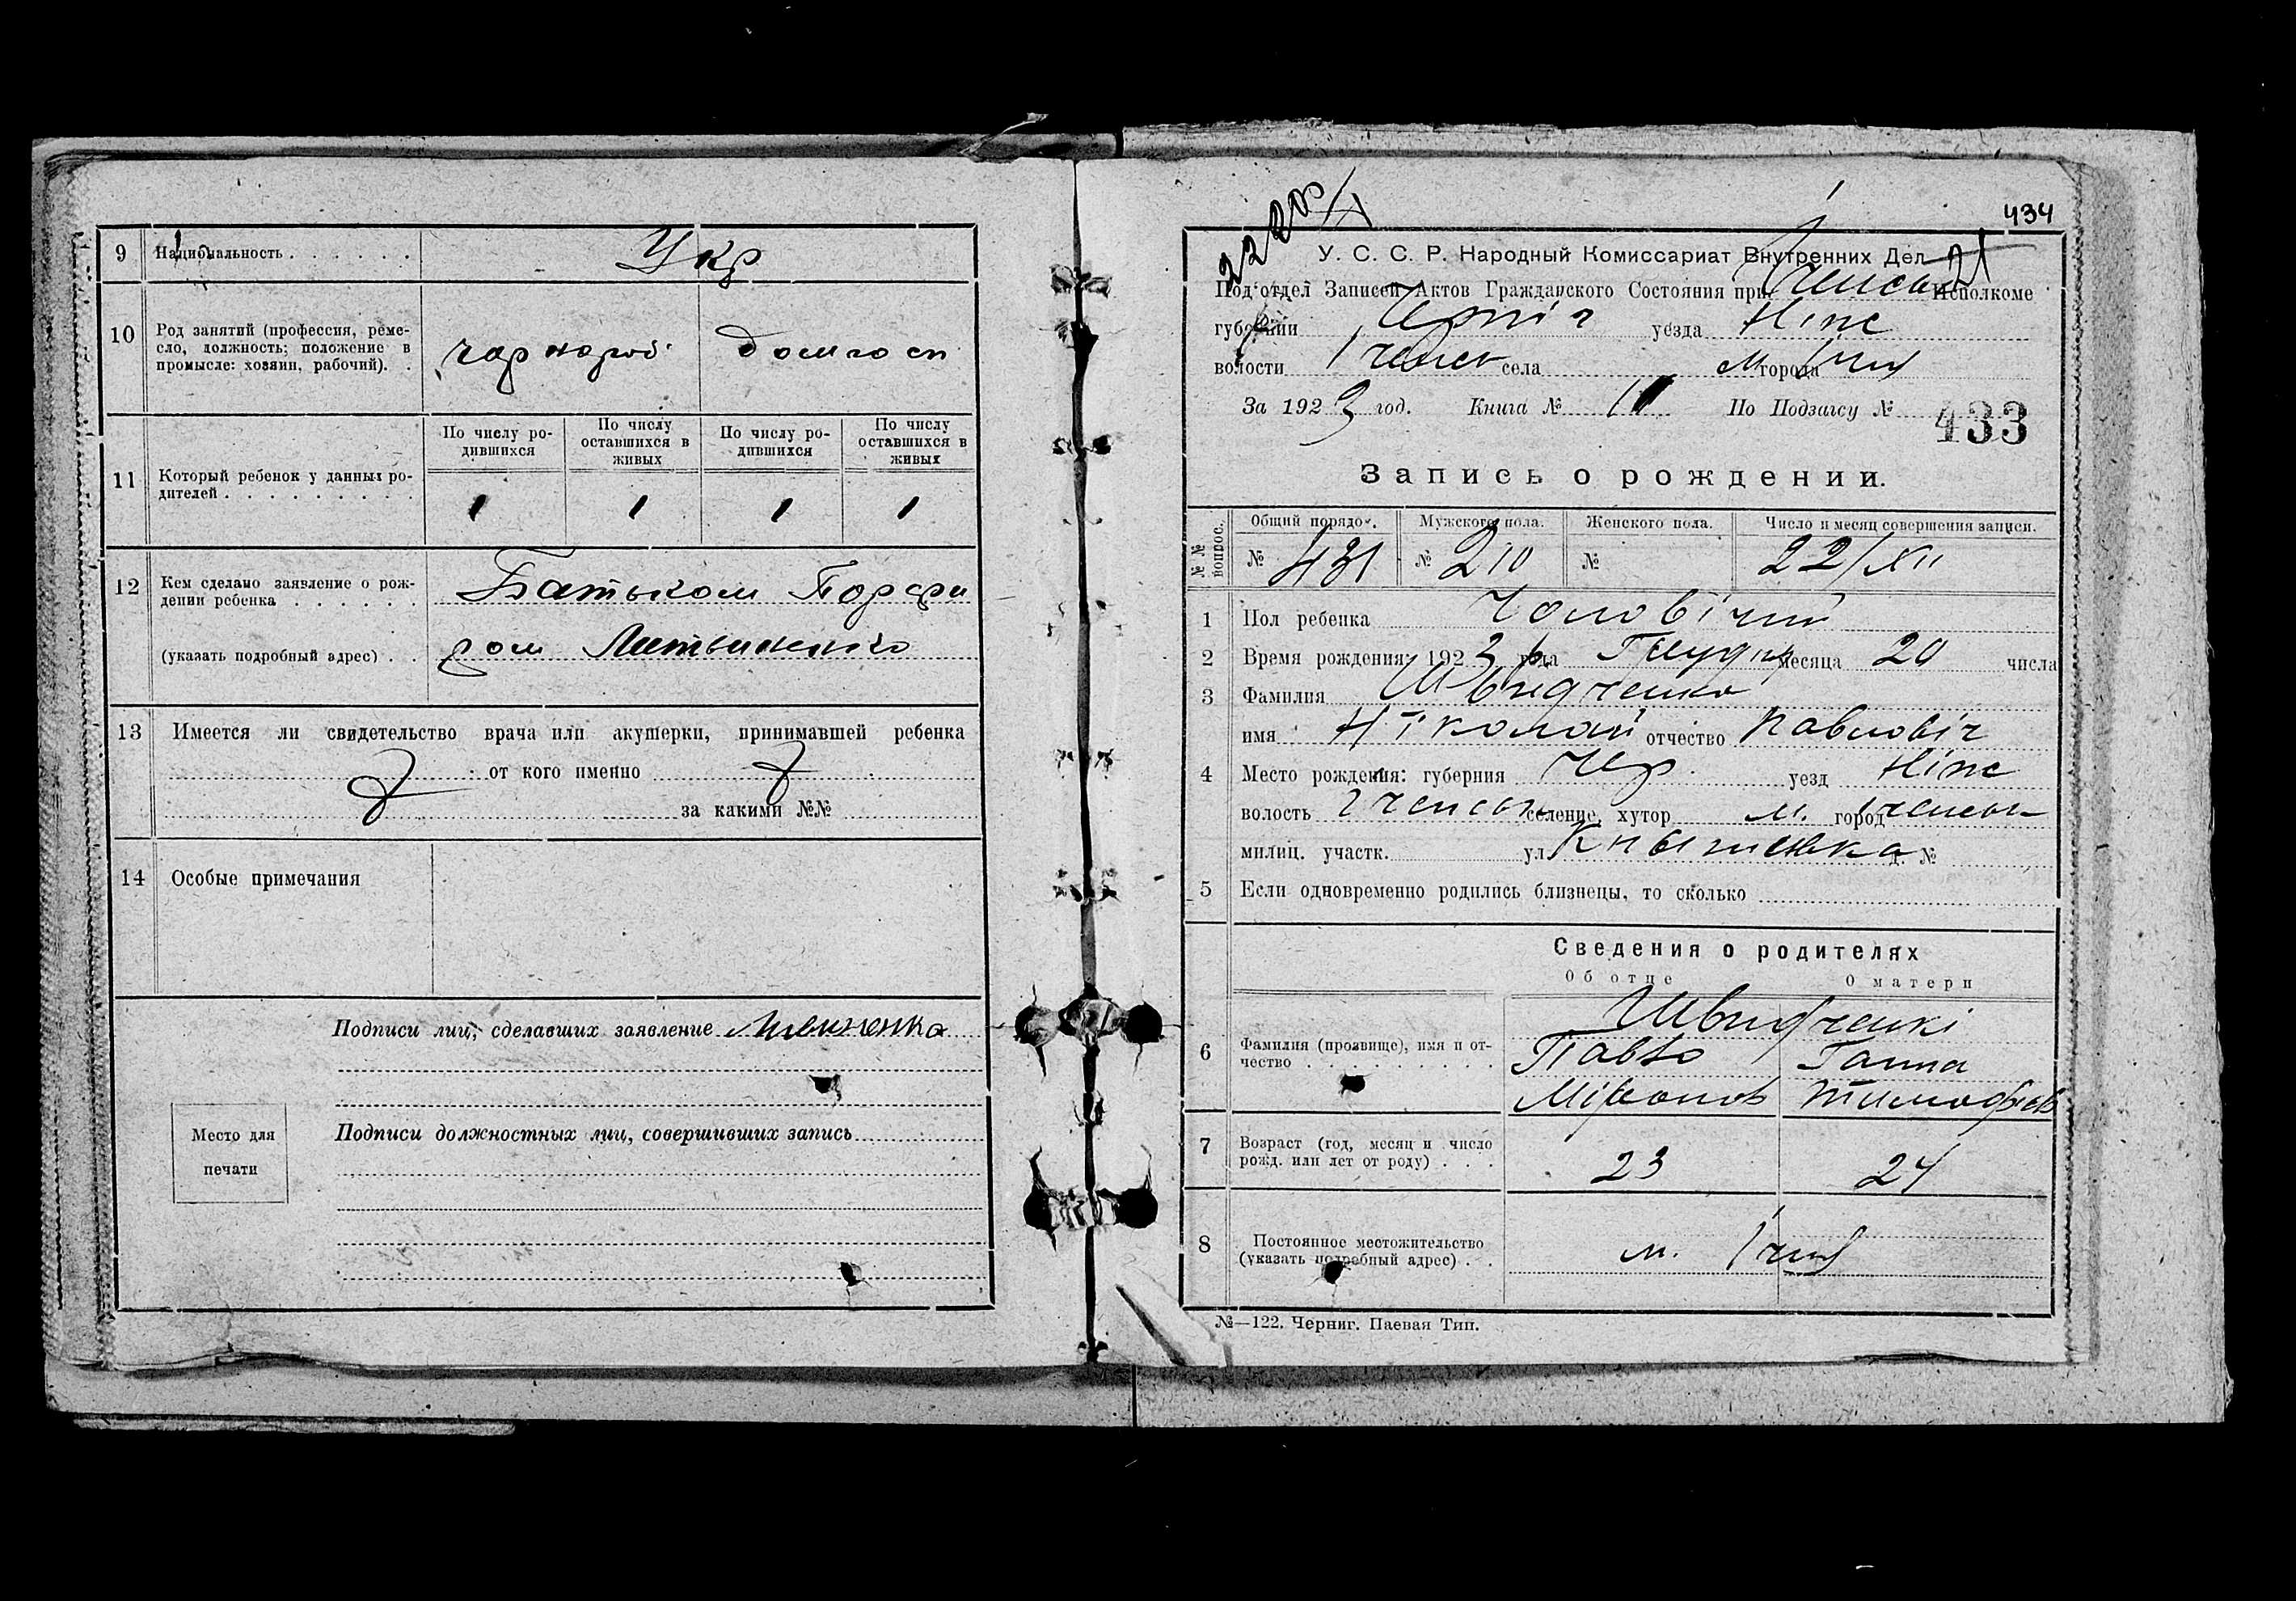 9 Национальность . . . . . . Укр
10 Род занятий (профессия, реме-
сло, должность; положение в
промысле: хозяин, рабочий). . чорнороб. домгосп
11 Который ребенок у данных ро-
дителей . . . . . . . . .
По числу ро-
дившихся
По числу
оставшихся в
живых
По числу ро-
дившихся
По числу
оставшихся в
живых
1 1 1 1
12 Кем сделано заявление о рож-
дении ребенка . . . . . . Батьком Порфи
(указать подробный адрес) . . ром
13 Имеется ли свидетельство врача или акушерки, принимавшей ребенка
от кого именно
за какими №№
14 Особые примечания
Подписи лиц, сделавших заявление
Место для
печати
Подписи должностных лиц, совершивших запись
434
У. С. С. Р. Народный Комиссариат Внутренних Дел
Под'отдел Записей Актов Гражданского Состояния при Іченськ Исполкоме
губернии Черніг уезда Ніж
волости Іченськ села м. города Ічня
За 1923 год. Книга № 11 По Подзагсу № 433
Запись о рождении.
№№ вопрос.
Общий порядо. Мужского пола. Женского пола. Число и месяц совершения записи.
№ 431 № 210 № 22/XII
1 Пол ребенка Чоловічий
2 Время рождения: 1923 года Грудня месяца 20 числа
3 Фамилия Швидченко
имя Ніколай отчество Павловіч
4 Место рождения: губерния Чер. уезд Ніж
волость Іченськ селение, хутор м. город Іченськ
милиц. участк. ул. д. №
5 Если одновременно родились близнецы, то сколько
Сведения о родителях
Об отце О матери
Швидченкі
6 Фамилия (прозвище), имя и от-
чество . . . . . . . . . Павло Ганна
Міронов Тимофіев
7 Возраст (год, месяц и число
рожд. или лет от роду) . . . 23 24
8 Постоянное местожительство
(указать подребный адрес) . . м. Ічня
№—122. Черниг. Паевая Тип.